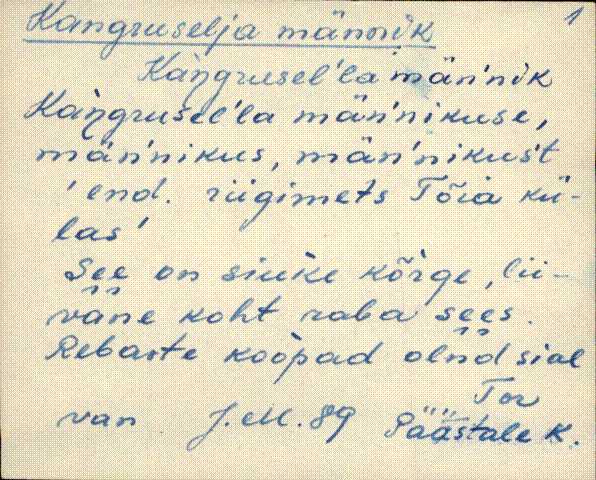 Kangruselja männik 1
Kaŋgrusel'la män'nik
Kaŋgrusel'la män'nikuse,
män'nikus, män'nikust
'end. riigimets Tõria kü-
las'
See on siuke kõrge, lii-
väne koht raba sees.
Rebaste koopad olnd sial
Tor
van J. M. 89 Päästale K.